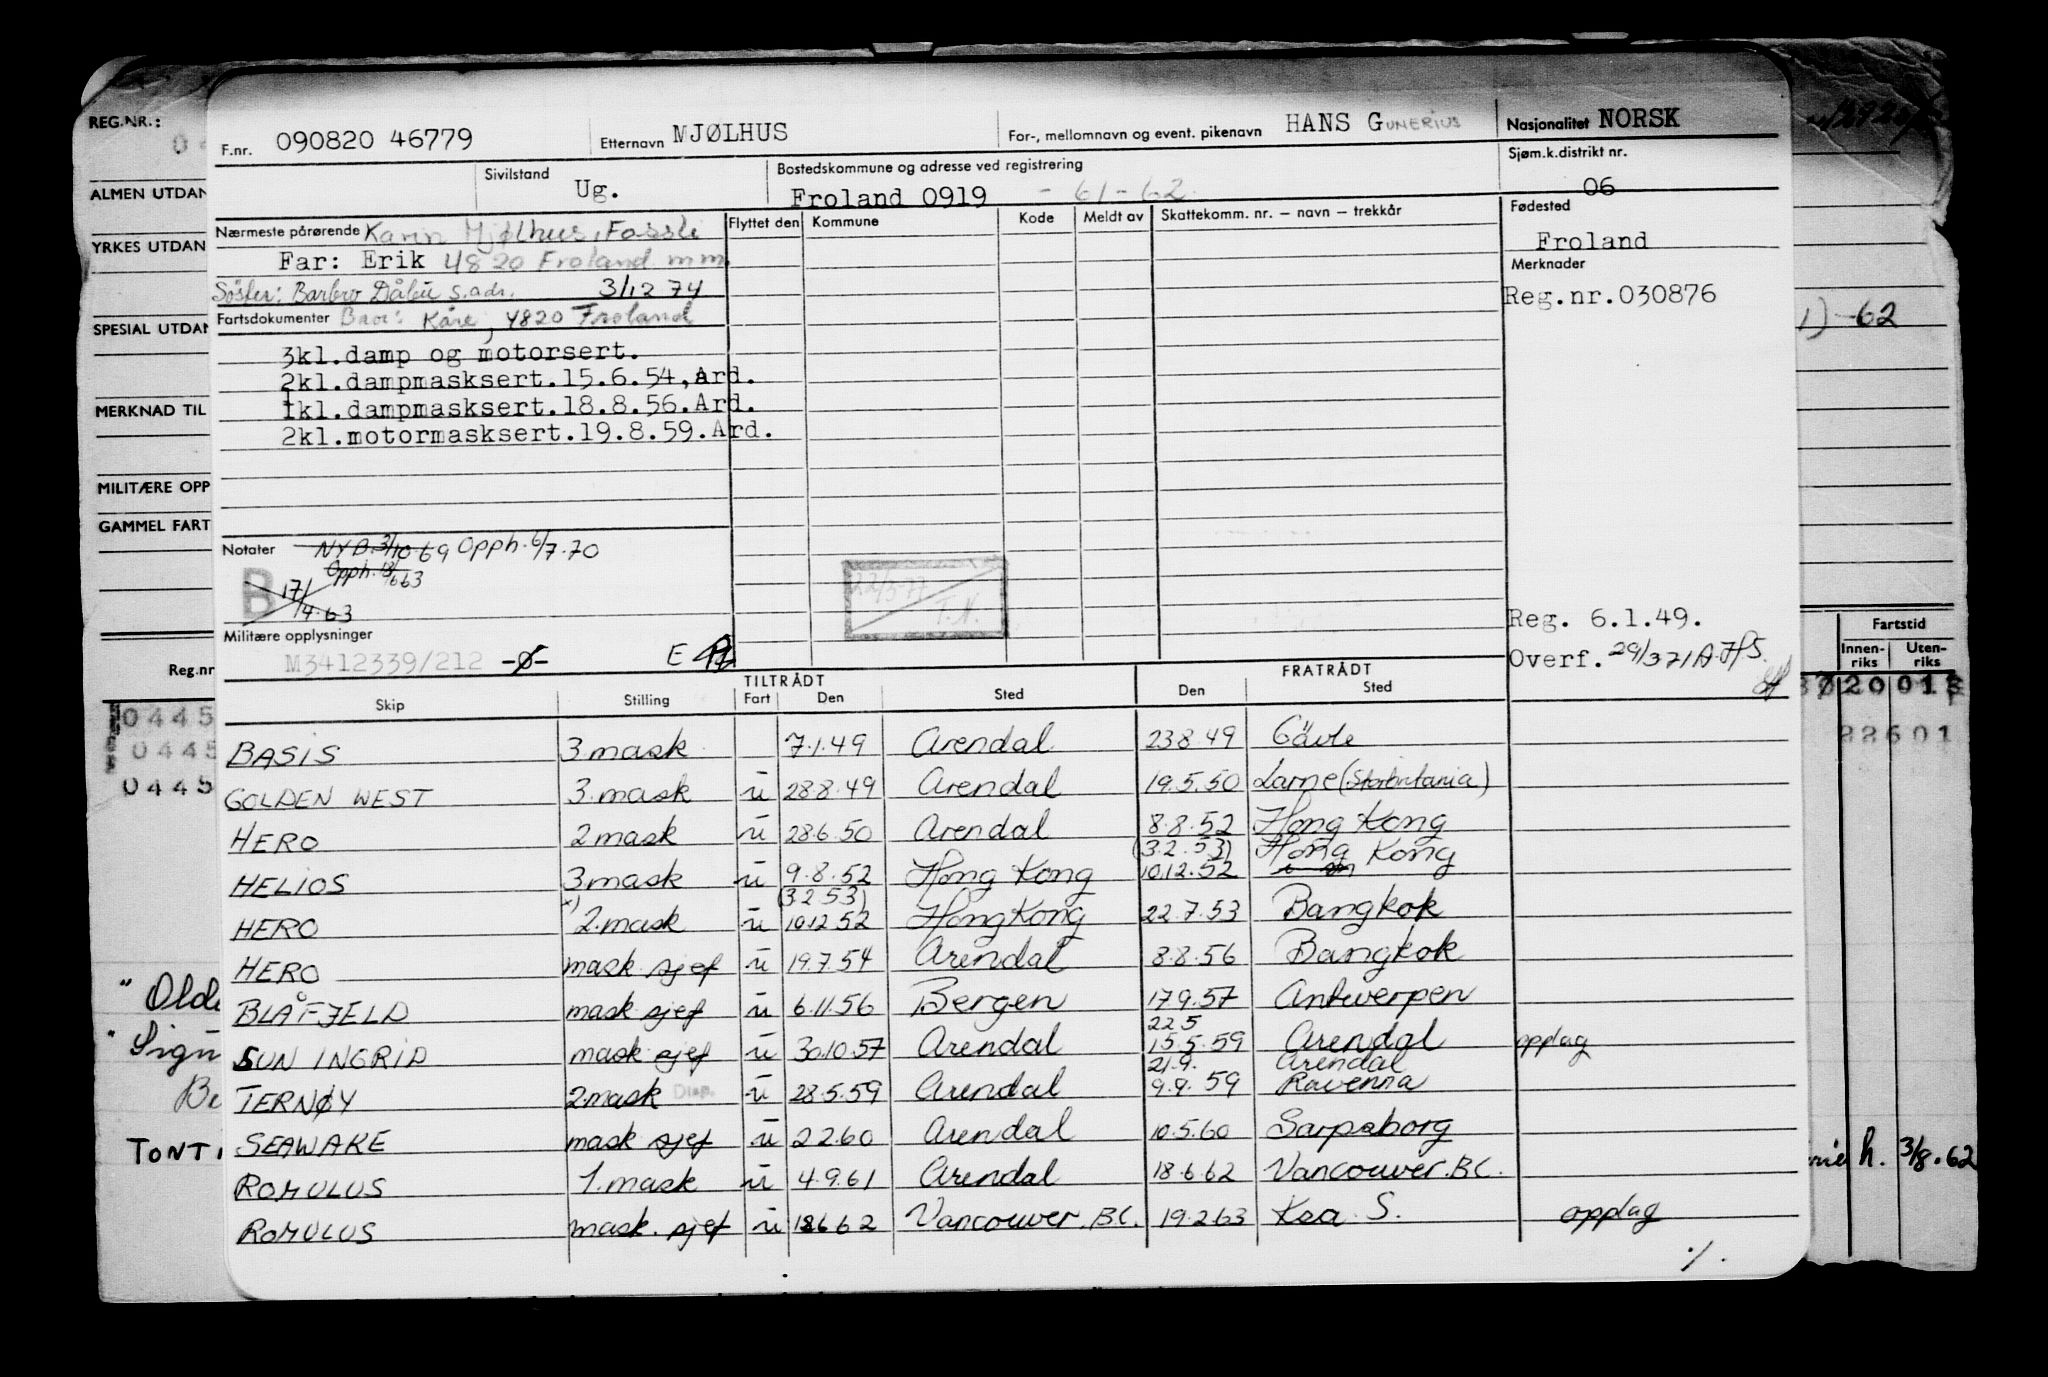 REG.NR.:
F.nr. 090820 46779 Etternavn MJØLHUS For-, mellomnavn og event. pikenavn HANS GUNERIUS Nasjonalitet NORSK
ALMEN UTDAN
Sivilstand Ug. Bostedskommune og adresse ved registrering Froland 0919 - 61-62 Sjøm.k.distrikt nr. 06
YRKES UTDAN
Nærmeste pårørende Karin Mjølhus, Fossli Flyttet den Kommune Kode Meldt av Skattekomm. nr. – navn – trekkår Fødested
Far: Erik 4820 Froland m m Froland
Søster: Barbro Dåbu s.adr. 3/12 74 Merknader
SPESIAL UTDAN
Fartsdokumenter Bror: Kåre, 4820 Froland Reg.nr.030876
1) -62
3kl.damp og motorsert.
2kl.dampmasksert.15.6.54,Ard.
MERKNAD TIL
1kl.dampmasksert.18.8.56.Ard.
2kl.motormasksert.19.8.59.Ard.
MILITÆRE OPP
GAMMEL FART
Notater NYB.3/10.69 Opph. 6/7.70
Opph. 18/663
B 17/4.63
22/3-77
T.N.
Militære opplysninger
M3412339/212 -Ø- E
Reg. 6.1.49.
Overf. 29/3 71 A.H.S.
Reg.nr
Fartstid
Innen-riks Uten-riks
TILTRÅDT FRATRÅDT
Skip Stilling Fart Den Sted Den Sted
0445
0445
0445
20 01
22601
BASIS 3.mask 7.1.49 Arendal 23 8 49 Gävle
GOLDEN WEST 3.mask u 28.8.49 Arendal 19.5.50 Larne (Storbritania)
HERO 2 mask u 28.6.50 Arendal 8.8.52 Hong Kong
HELIOS 3 mask u 9.8.52 Hong Kong (3.2.53) 10.12.52 Hong Kong
HERO x) 2.mask u (3 2 53) 10.12 52 Hong Kong 22.7.53 Bangkok
HERO mask sjef u 19.7.54 Arendal 8.8.56 Bangkok
BLÅFJELD mask sjef u 6.11.56 Bergen 17 9.57 Antwerpen
SUN INGRID mask sjef u 30.10.57 Arendal 22 5 15.5.59 Arendal opplag
TERNØY 2.mask Disp. u 28.5.59 Arendal 21.9. 9.9.59 Arendal Ravenna
SEAWAKE mask sjef u 2 2.60 Arendal 10.5.60 Sarpsborg
ROMULUS 1.mask u 4.9.61 Arendal 18.6.62 Vancouver.B.C.
ROMULUS mask. sjef u 18 6 62 Vancouver. B.C. 19.2 63 Krs. S. opplag
" Olde
" Sign
Be
TONT
h. 3/8.62
./.